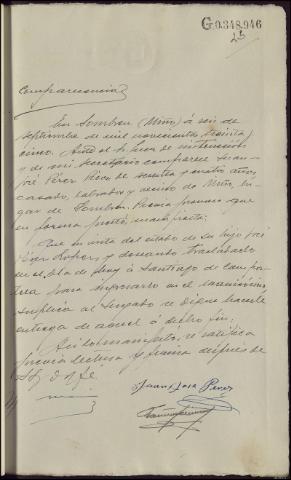 G.0.348.946
Comparecencia
En Sombreu (Miño) á seis de
septiembre de mil novecientos treinta y
cinco. Ante el Sr. Juez de instrucción
y de mi Secretario comparece Juan
José Pérez Rico de sesenta y cuatro años,
casado, labrador y vecino de Miño, lu-
gar de Sombreu. Previa promesa que
en forma prestó, manifiesta:
Que en vista del estado de su hijo José
Pérez, y deseando trasladarlo
en el día de hoy á Santiago de Compos-
tela para ingresarlo en el manicomio,
suplica al Juzgado se digne hacerle
entrega de aquel á dicho fin.
Así lo manifestó, se ratifica
previa lectura y firma después de
S.Sª Doy fé
Juan Jose Perez